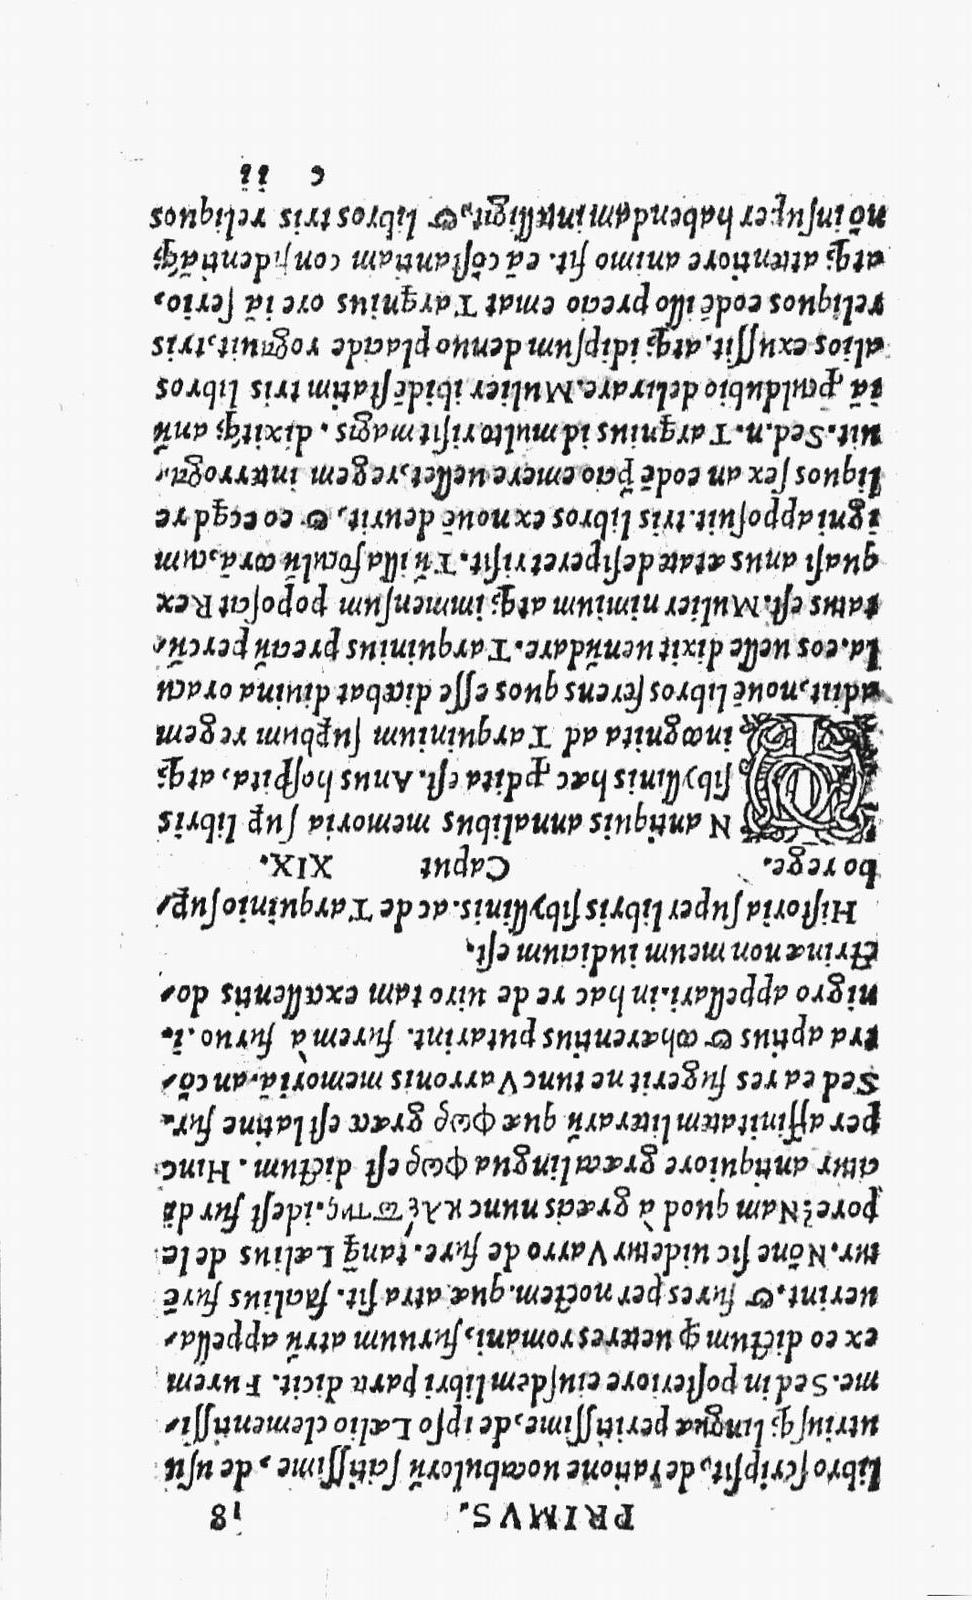 PRIMVS. 18
libro scripsit, de ratione uocabulorũ scitissime, de usu
utriusq; linguæ peritissime, de ipso Lælio clementissi-
me. Sed in posteriore eiusdem libri parte dicit. Furem
ex eo dictum ꝙ ueteres romani, furuum atrũ appella-
uerint, & fures per noctem. quæ atra sit. facilius furē
tur. Nōne sic uidetur Varro de fure. tanq̃ Lælius de le
pore? Nam quod à græcis nunc κλέπτης. idest fur dã
citur antiquiore græca lingua φωρ est dictum. Hinc
per affinitatem litterarũ quæ φωρ græce est latine fur.
Sed ea res fugerit ne tunc Varronis memoriã. an cō-
tra aptius & cohærentius putarint. furem à furuo. i.
nigro appellari. in hac re de uiro tam excellentis do-
ctrinæ non meum iudicium est.
Historia super libris sibyllinis. ac de Tarquinio sup̱-
bo rege. Caput XIX.
IN antiquis annalibus memoria sup̱ libris
sibyllinis hæc ꝓdita est. Anus hospita, atq;
incognita ad Tarquinium sup̱bum regem
adiit, nouē libros ferens quos esse dicebat diuina oracu
la. eos uelle dixit uenũdare. Tarquinius preciũ percũ-
tatus est. Mulier nimium atq; immensum poposcit Rex
quasi anus ætate desiperet risit. Tũ illa foculũ corã, cum
igni apposuit. tris libros ex nouē deurit, & eo ecqd re
liquos sex an eodē p̃cio emere uellet, regem interroga-
uit. Sed .n. Tarqnius id multo risit magis. dixitq; anũ
iã ꝓculdubio delirare. Mulier ibidē statim tris libros
alios exussit. atq; id ipsum denuo placide rogauit, tris
reliquos eodē illo precio emat Tarqnius ore iã serio,
atq; attentiore animo fit. eã cōstantiam confidentiãq;
nō insup̱er habendam intelligit, & libros tris reliquos
c ii